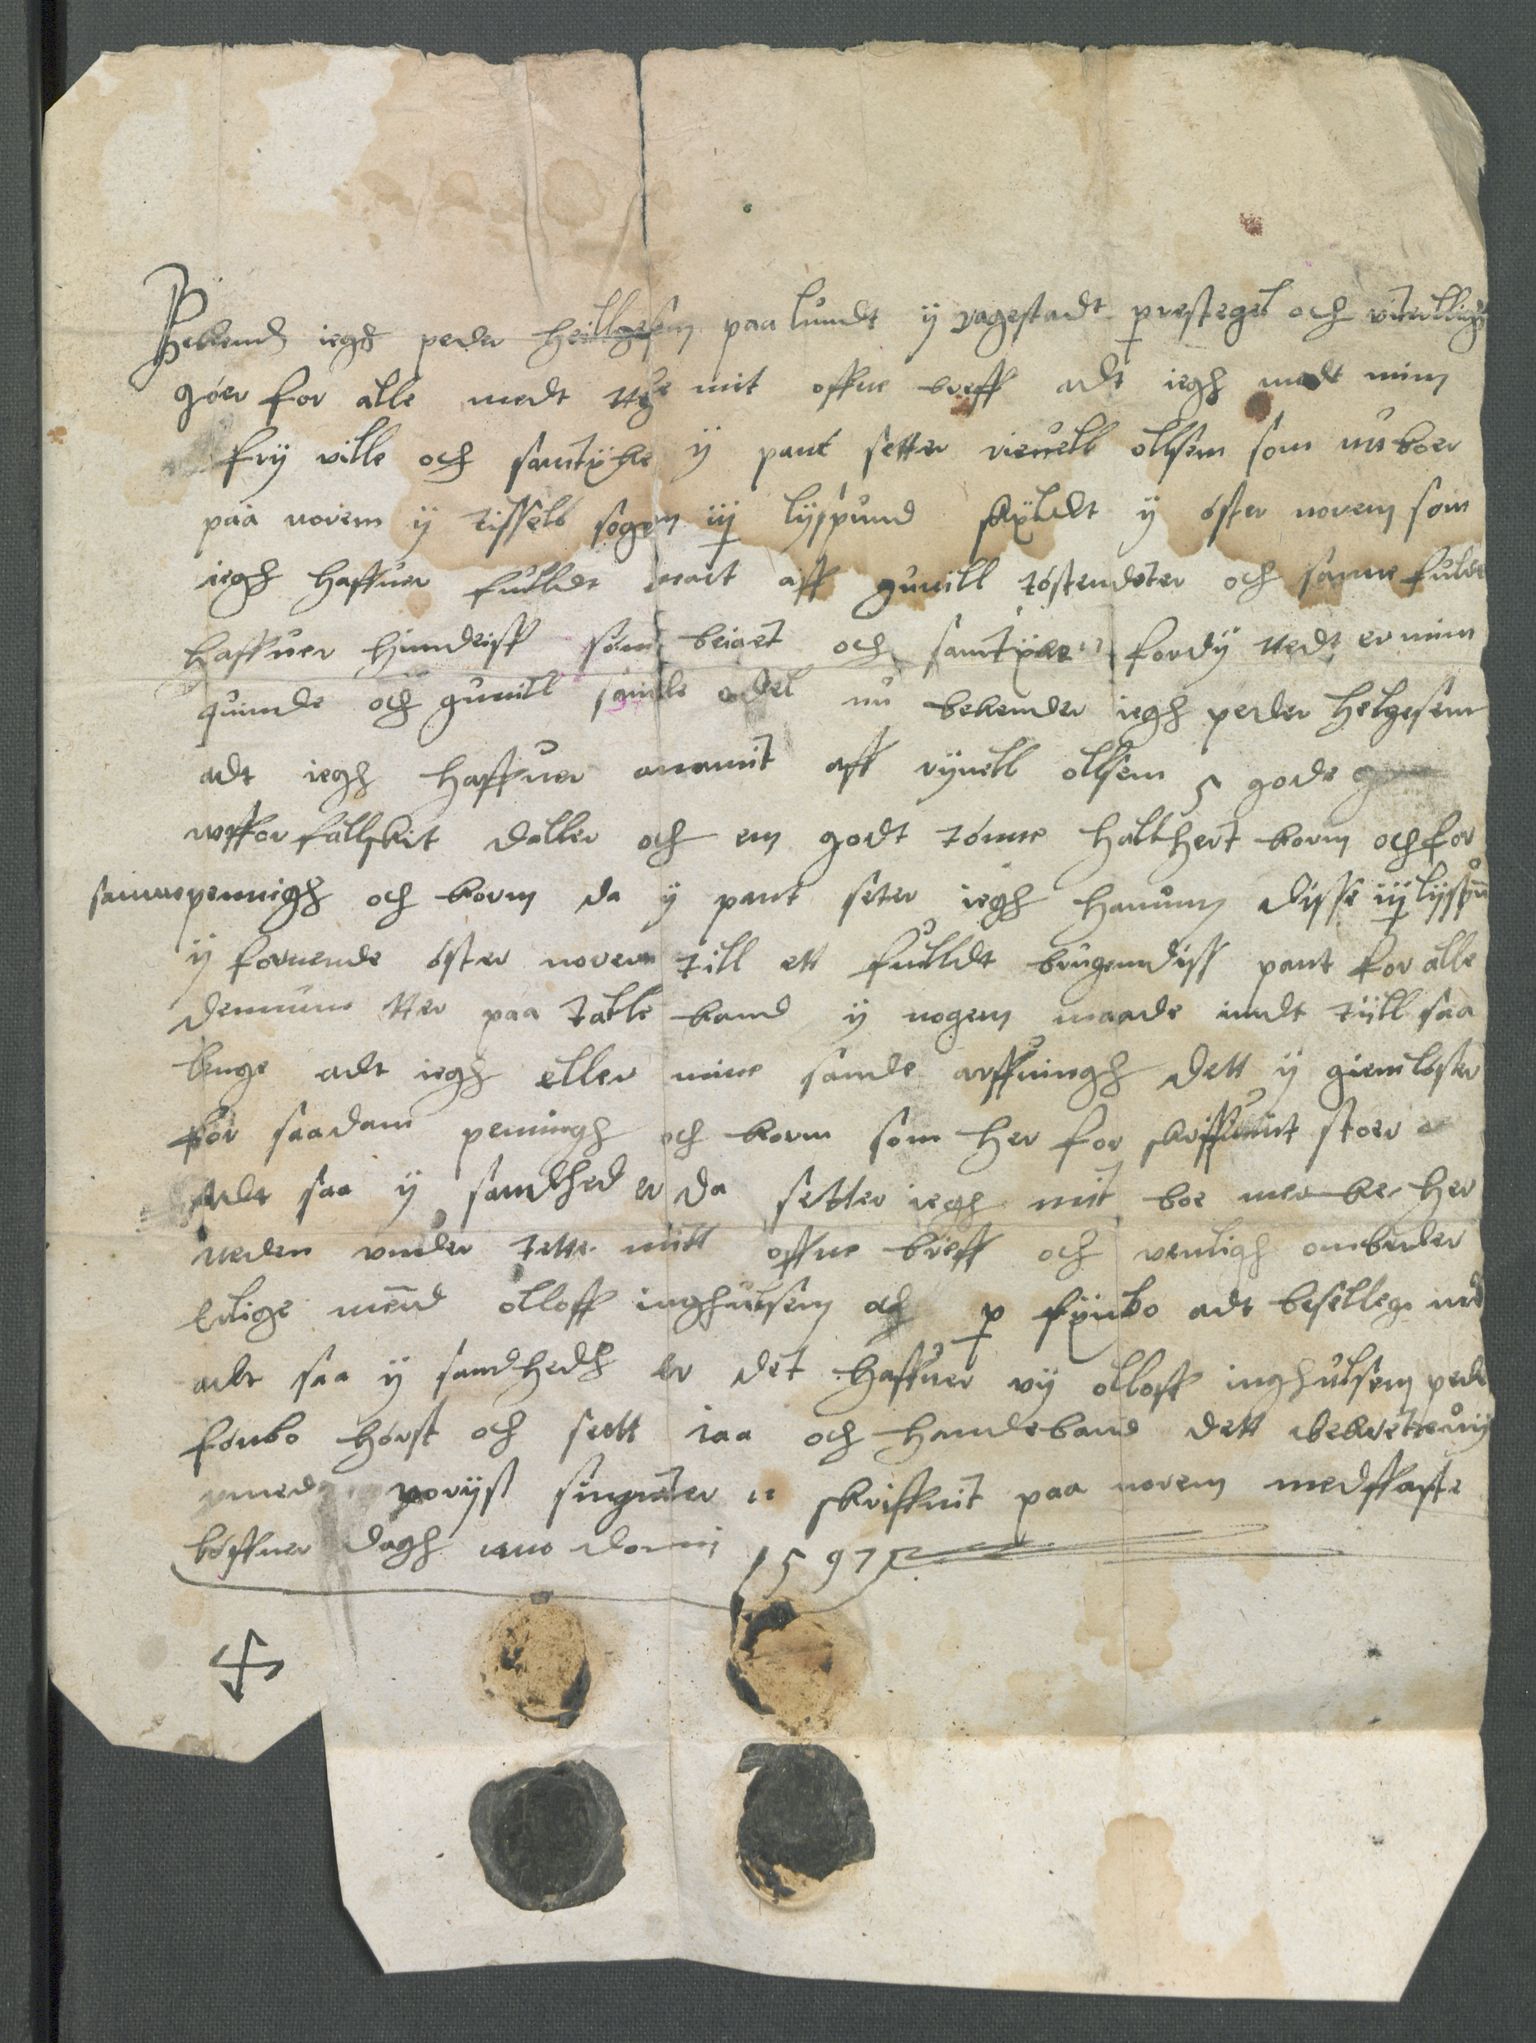 Bekend iegh peder heillgesen paa lundt ÿ vagestadt prestegel och viterlligt
góer for alle medt tte mit offne breff adt iegh medt minn
frÿ ville och samtÿke ÿ pant setter rieuell ollsenn som nu boer
paa norem ÿ tissels sogen iij lÿspund skÿldt ÿ óster norem som
iegh haffuer fulldt mact aff gunill tóstendoter och samme fulde
haffuer hinndeiss sønn beiaet och samtÿke fordÿ ttedt er minn
quinde och gunill samle odel nu bekender iegh peder helgesenn
adt iegh haffuer anamit aff rÿuell ollsenn 5 gode
wfforfallskit daller och en godt tónne halthert korn och for
samme pennigh och korn da ÿ pant seter iegh hanum disse iij lÿspun
ÿ fornende óster norem till ett fulldt brugendiss pant for alle
dennum tter paa talle kand ÿ nogenn maade indt tÿll saa
lenge adt iegh eller mine sande arffuingh dett ÿ gienlóser
for saadann penningh och korn som her for skriffuint stoer
adt saa ÿ sandhed er da setter iegh mit boemerke her
neden vnder tette mitt offne breff och venligh ombeder
erlige mend olloff inghulsenn och p fÿnbo adt beselle med
adt saa ÿ sandhedh er det haffuer vÿ olloff inghulsenn peder
fónbo hórst och seett iaa och handeband dett bekrefter vÿ
med voriss singneter skriffuit paa norem medffaste
løffuer dagh ano domi 1597